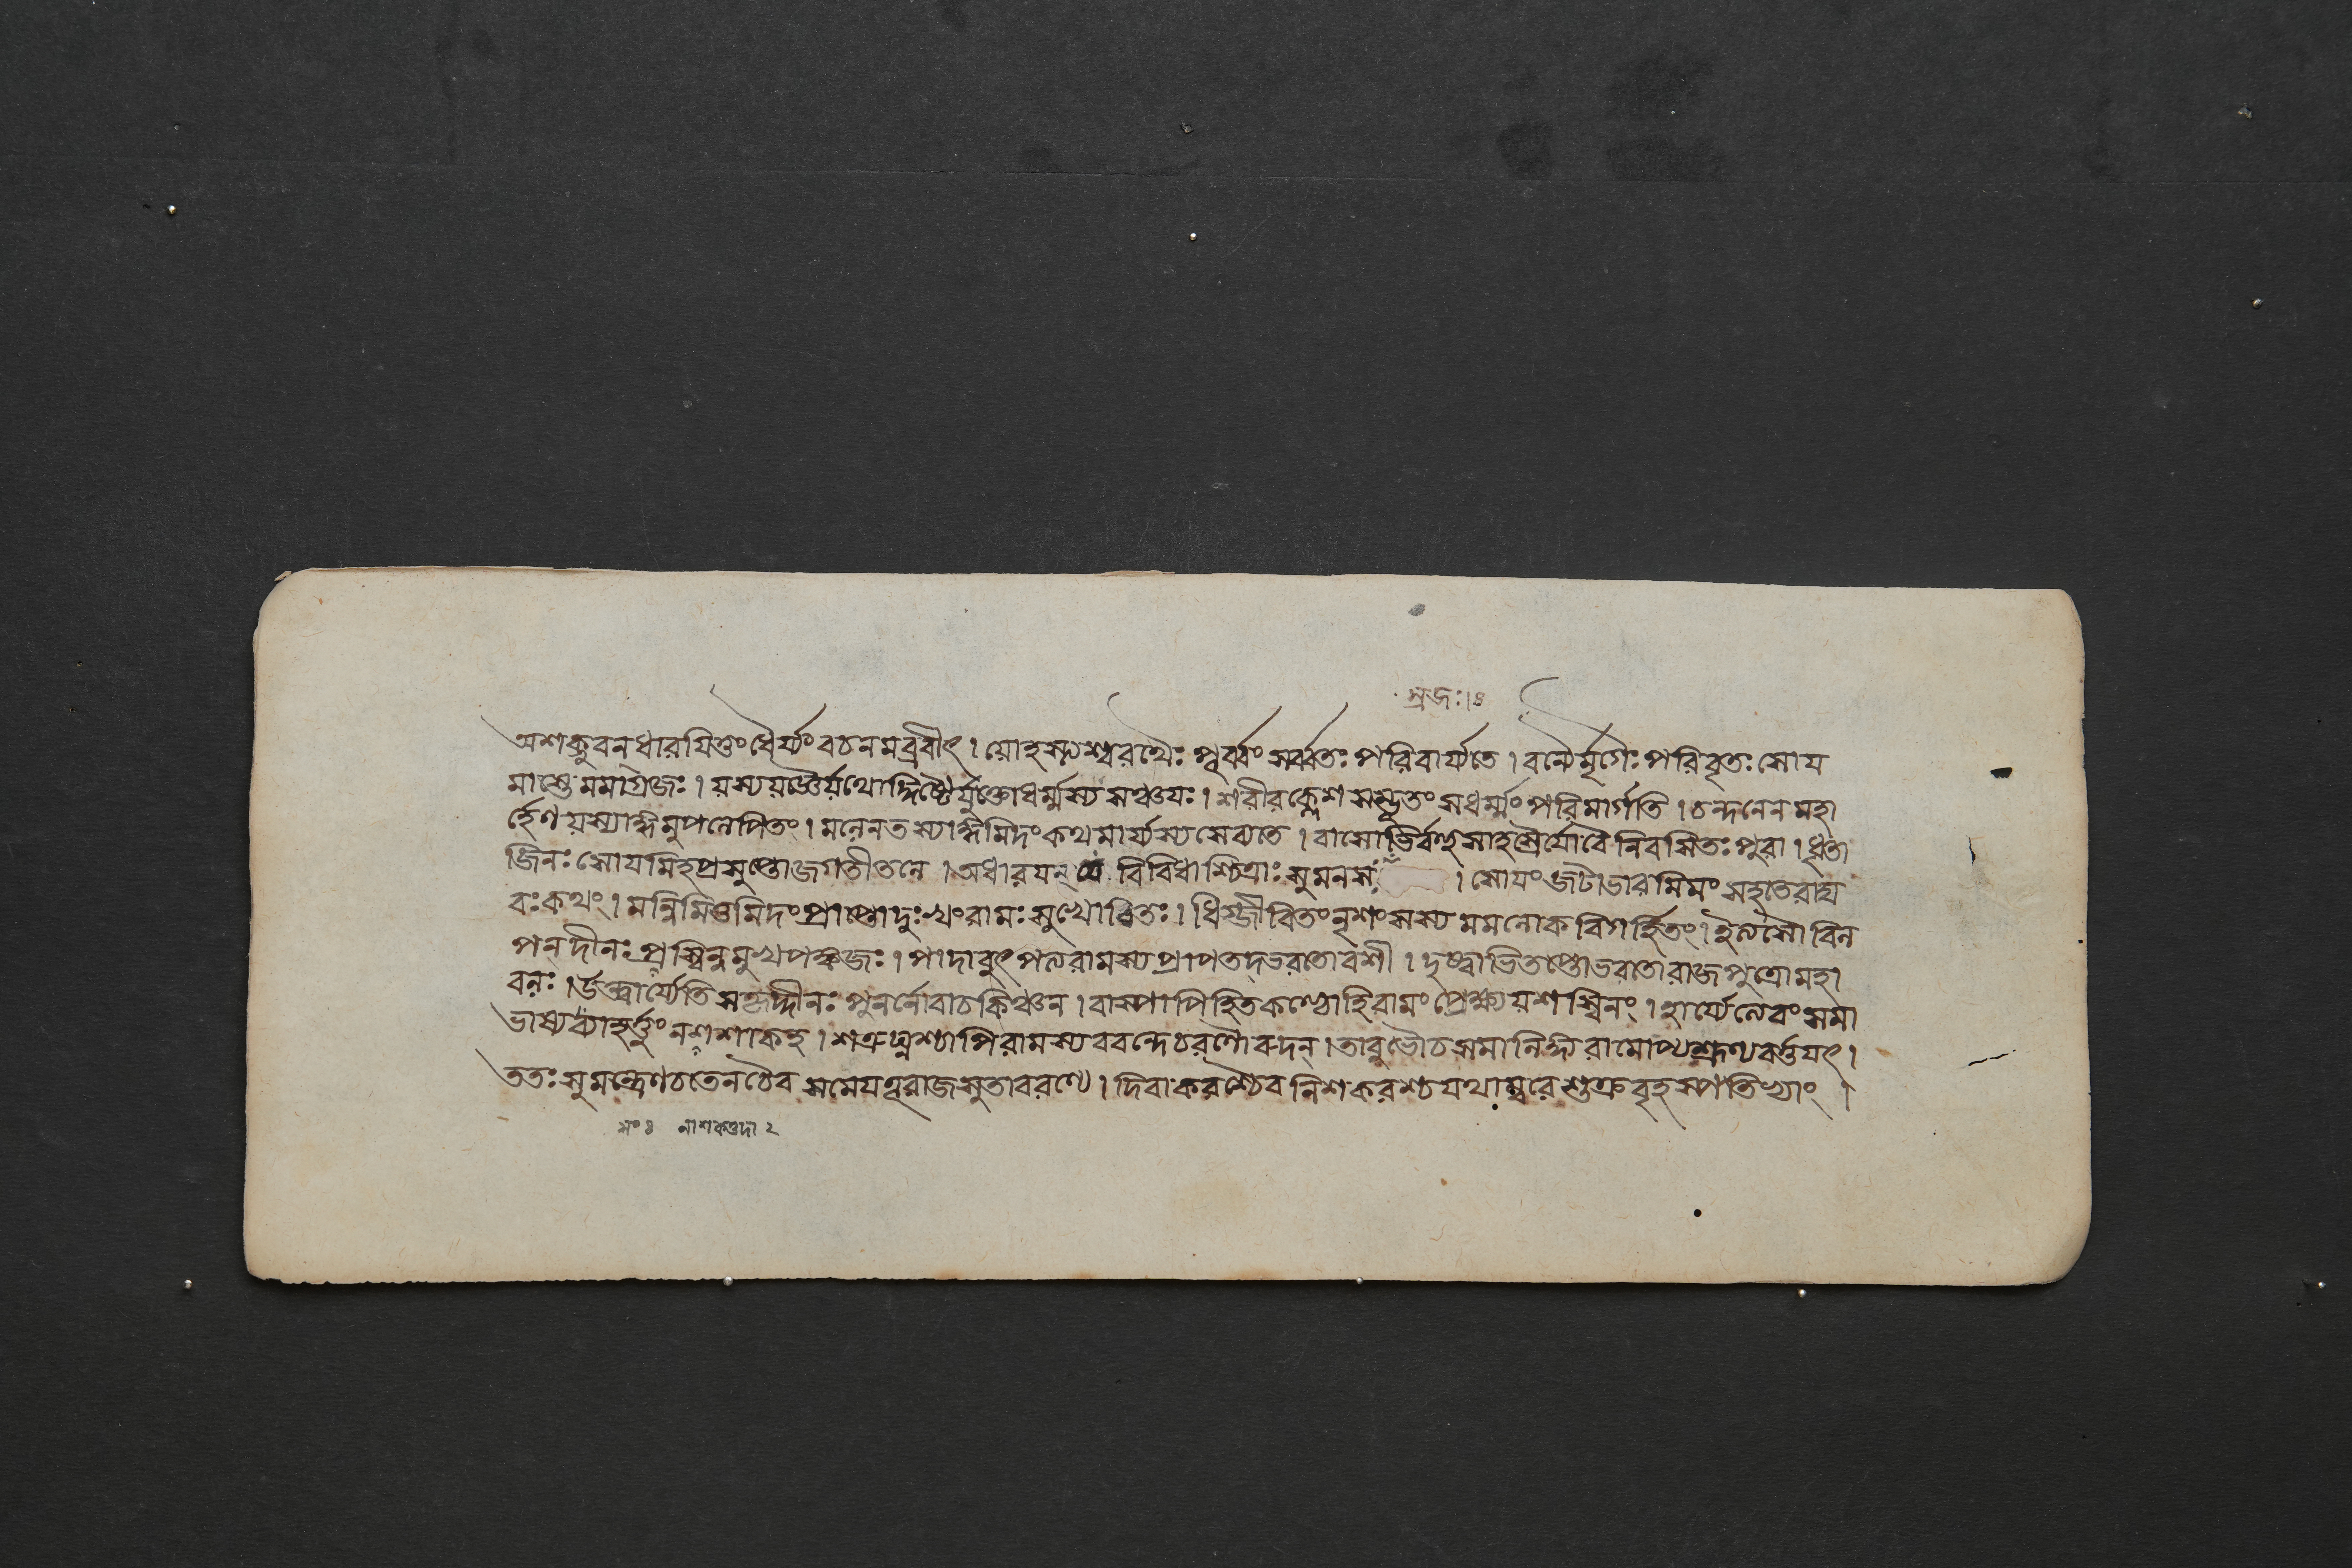 স্রজঃ।৪
অশক্নুবন্ধারয়িতুংধৈর্য্যংবচনমব্রবীৎ। যোহস্ত্যশ্বরথৈঃ পূর্ব্বং সর্ব্বতঃ পরিবার্য্যতে। বন্যৈর্মৃগৈঃ পরিবৃতঃ সোয
মাস্তে মমাগ্রজঃ। যস্যযজ্ঞৈর্যথোদ্দিষ্টৈর্যুক্তোধর্ম্মস্যসঞ্চযঃ। শরীরক্লেশসম্ভূতংসধর্ম্মংপরিমার্গতি। চন্দনেন মহা
র্হেণ যস্যাঙ্গমুপলেপিতং। মলেনতস্যাঙ্গমিদংকথমার্য্যস্যসেব্যতে। বাসোভির্বহুসাহস্রৈর্যোবৈনিবসিতঃ পুরা। ধৃতা
জিনঃ সোযমিহপ্রসুপ্তোজগতীতলে। অধারযন্ যো বিবিধাশ্চিত্রাঃ সুমনসঃ । সোযংজটাভারমিমংসহতেরাঘ
বঃকথং। মন্নিমিত্তমিদংপ্রাপ্তোদুঃখংরামঃসুখোচিতঃ। ধিগ্জীবিতংনৃশংসস্য মমলোকবিগর্হিতং। ইত্যসৌ বিল
পন্দীনঃপ্রস্বিন্নমুখপঙ্কজঃ। পাদাবুৎপত্যরামস্যপ্রাপতদ্ভরতোবশী। দুঃখাভিতপ্তোভরতোরাজপুত্রোমহা
বলঃ।উক্ত্বার্য্যেতি সকৃদ্দীনঃ পুনর্নোবাচকিঞ্চন। বাস্পাপিহিতকণ্ঠোহিরামংপ্রেক্ষ্যযশস্বিনং। হার্য্যেত্যেবংসমা
ভাষ্যব্যাহর্ত্তুংনশশাকহ। শত্রুঘ্নশ্চাপিরামস্যববন্দেচরণৌরুদন্।তাবুভৌচসমালিঙ্গ্যরামোপ্যশ্রূণ্যবর্ত্তযৎ।
ততঃ সুমন্ত্রেণচতেনচৈব সমেযতূরাজসুতাবরণ্যে। দিবাকরশ্চৈব নিশকরশ্চ যথাম্বরে শুক্রবৃহস্পতিভ্যাং।
নাশকত্তদা ২